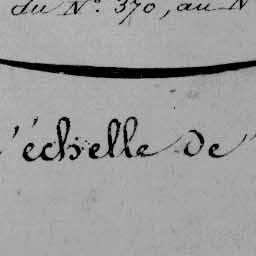 du N.° 370, au N
l'échelle de